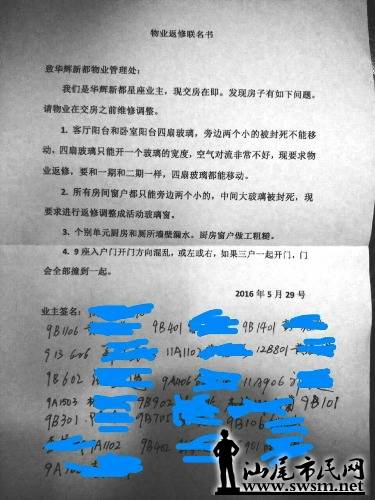 物业返修联名书
致华辉新都物业管理处：
我们是华辉新都星座业主，现交房在即。发现房子有如下问题。
请物业在交房之前维修调整。
1. 客厅阳台和卧室阳台四扇玻璃，旁边两个小的被封死不能移
动，四扇玻璃只能开一个玻璃的宽度，空气对流非常不好，现要求物
业返修，要和一期和二期一样，四扇玻璃都能移动。
2. 所有房间窗户都只能旁边两个小的，中间大玻璃被封死，现
要求进行返修调整成活动玻璃窗。
3. 个别单元厨房和厕所墙壁漏水。厨房窗户做工粗糙。
4. 9座入户门开门方向混乱，或左或右，如果三户一起开门，门
会全部撞到一起。
2016年5月29号
业主签名：
9B1106 9B401 9B1401
11A1102 12B801
9B602 9A1106 11A906
9A1503 9B902 9B101
9B301 9B705 9B106
9A1102 9B402
9A
汕尾市民网
www.swsm.net